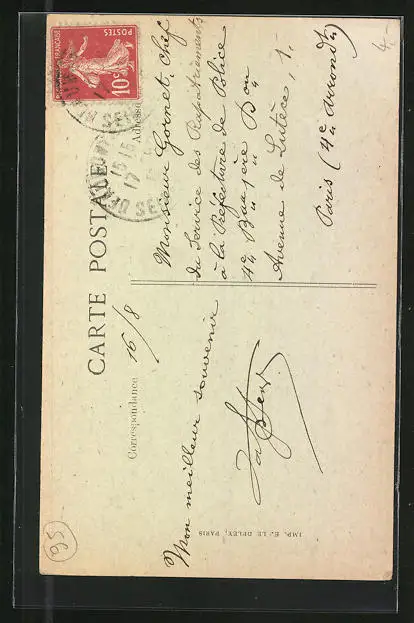 CARTE POSTALE
Correspondance
Adresse
16/8
Mon meilleur souvenir
Monsieur Gornet, Chef
du Service des Rapatriements
à la Préfecture de Police
Avenue de Lutèce, 1.
Paris (4e arrondt)
IMP. E. LE DELEY, PARIS
POSTES
10c
95
4.-